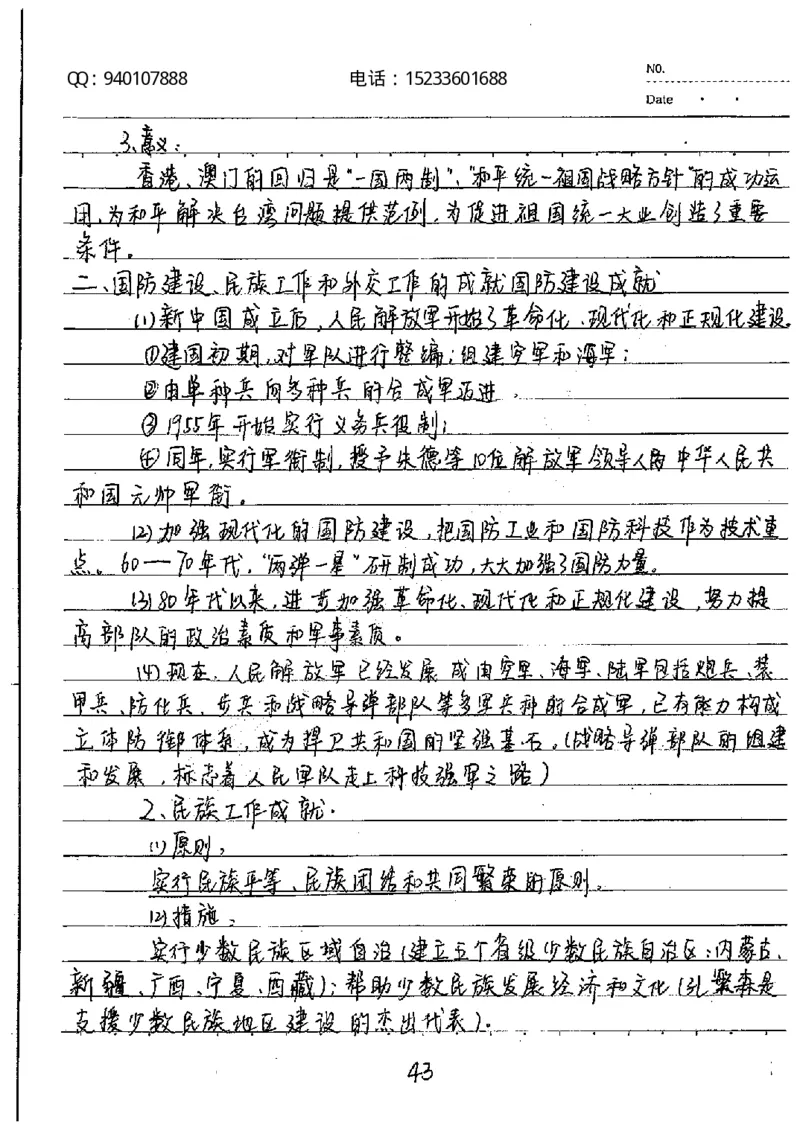 QQ：940107888 电话：15233601688 NO.
Date
3、意义：
香港、澳门的回归是“一国两制”、“和平统一祖国战略方针”的成功运
用，为和平解决台湾问题提供范例，为促进祖国统一大业创造了重要
条件。
二、国防建设、民族工作和外交工作的成就国防建设成就
(1)新中国成立后，人民解放军开始了革命化、现代化和正规化建设。
①建国初期，对军队进行整编；组建空军和海军；
②由单种兵向多种兵的合成军迈进，
③1955年开始实行义务兵役制；
④同年，实行军衔制，授予朱德等10位解放军领导人为中华人民共
和国元帅军衔。
(2)加强现代化的国防建设，把国防工业和国防科技作为技术重
点。60—70年代，“两弹一星”研制成功，大大加强了国防力量。
(3)80年代以来，进步加强革命化、现代化和正规化建设，努力提
高部队的政治素质和军事素质。
(4)现在，人民解放军已经发展成由空军、海军、陆军包括炮兵、装
甲兵、防化兵、步兵和战略导弹部队等多军兵种的合成军，已有能力构成
立体防御体系，成为捍卫共和国的坚强基石。(战略导弹部队的组建
和发展，标志着人民军队走上科技强军之路)
2、民族工作成就.
(1)原则：
实行民族平等、民族团结和共同繁荣的原则。
(2)措施：
实行少数民族区域自治(建立五个省级少数民族自治区：内蒙古、
新疆、广西、宁夏、西藏)；帮助少数民族发展经济和文化(孔繁森是
支援少数民族地区建设的杰出代表)．
43